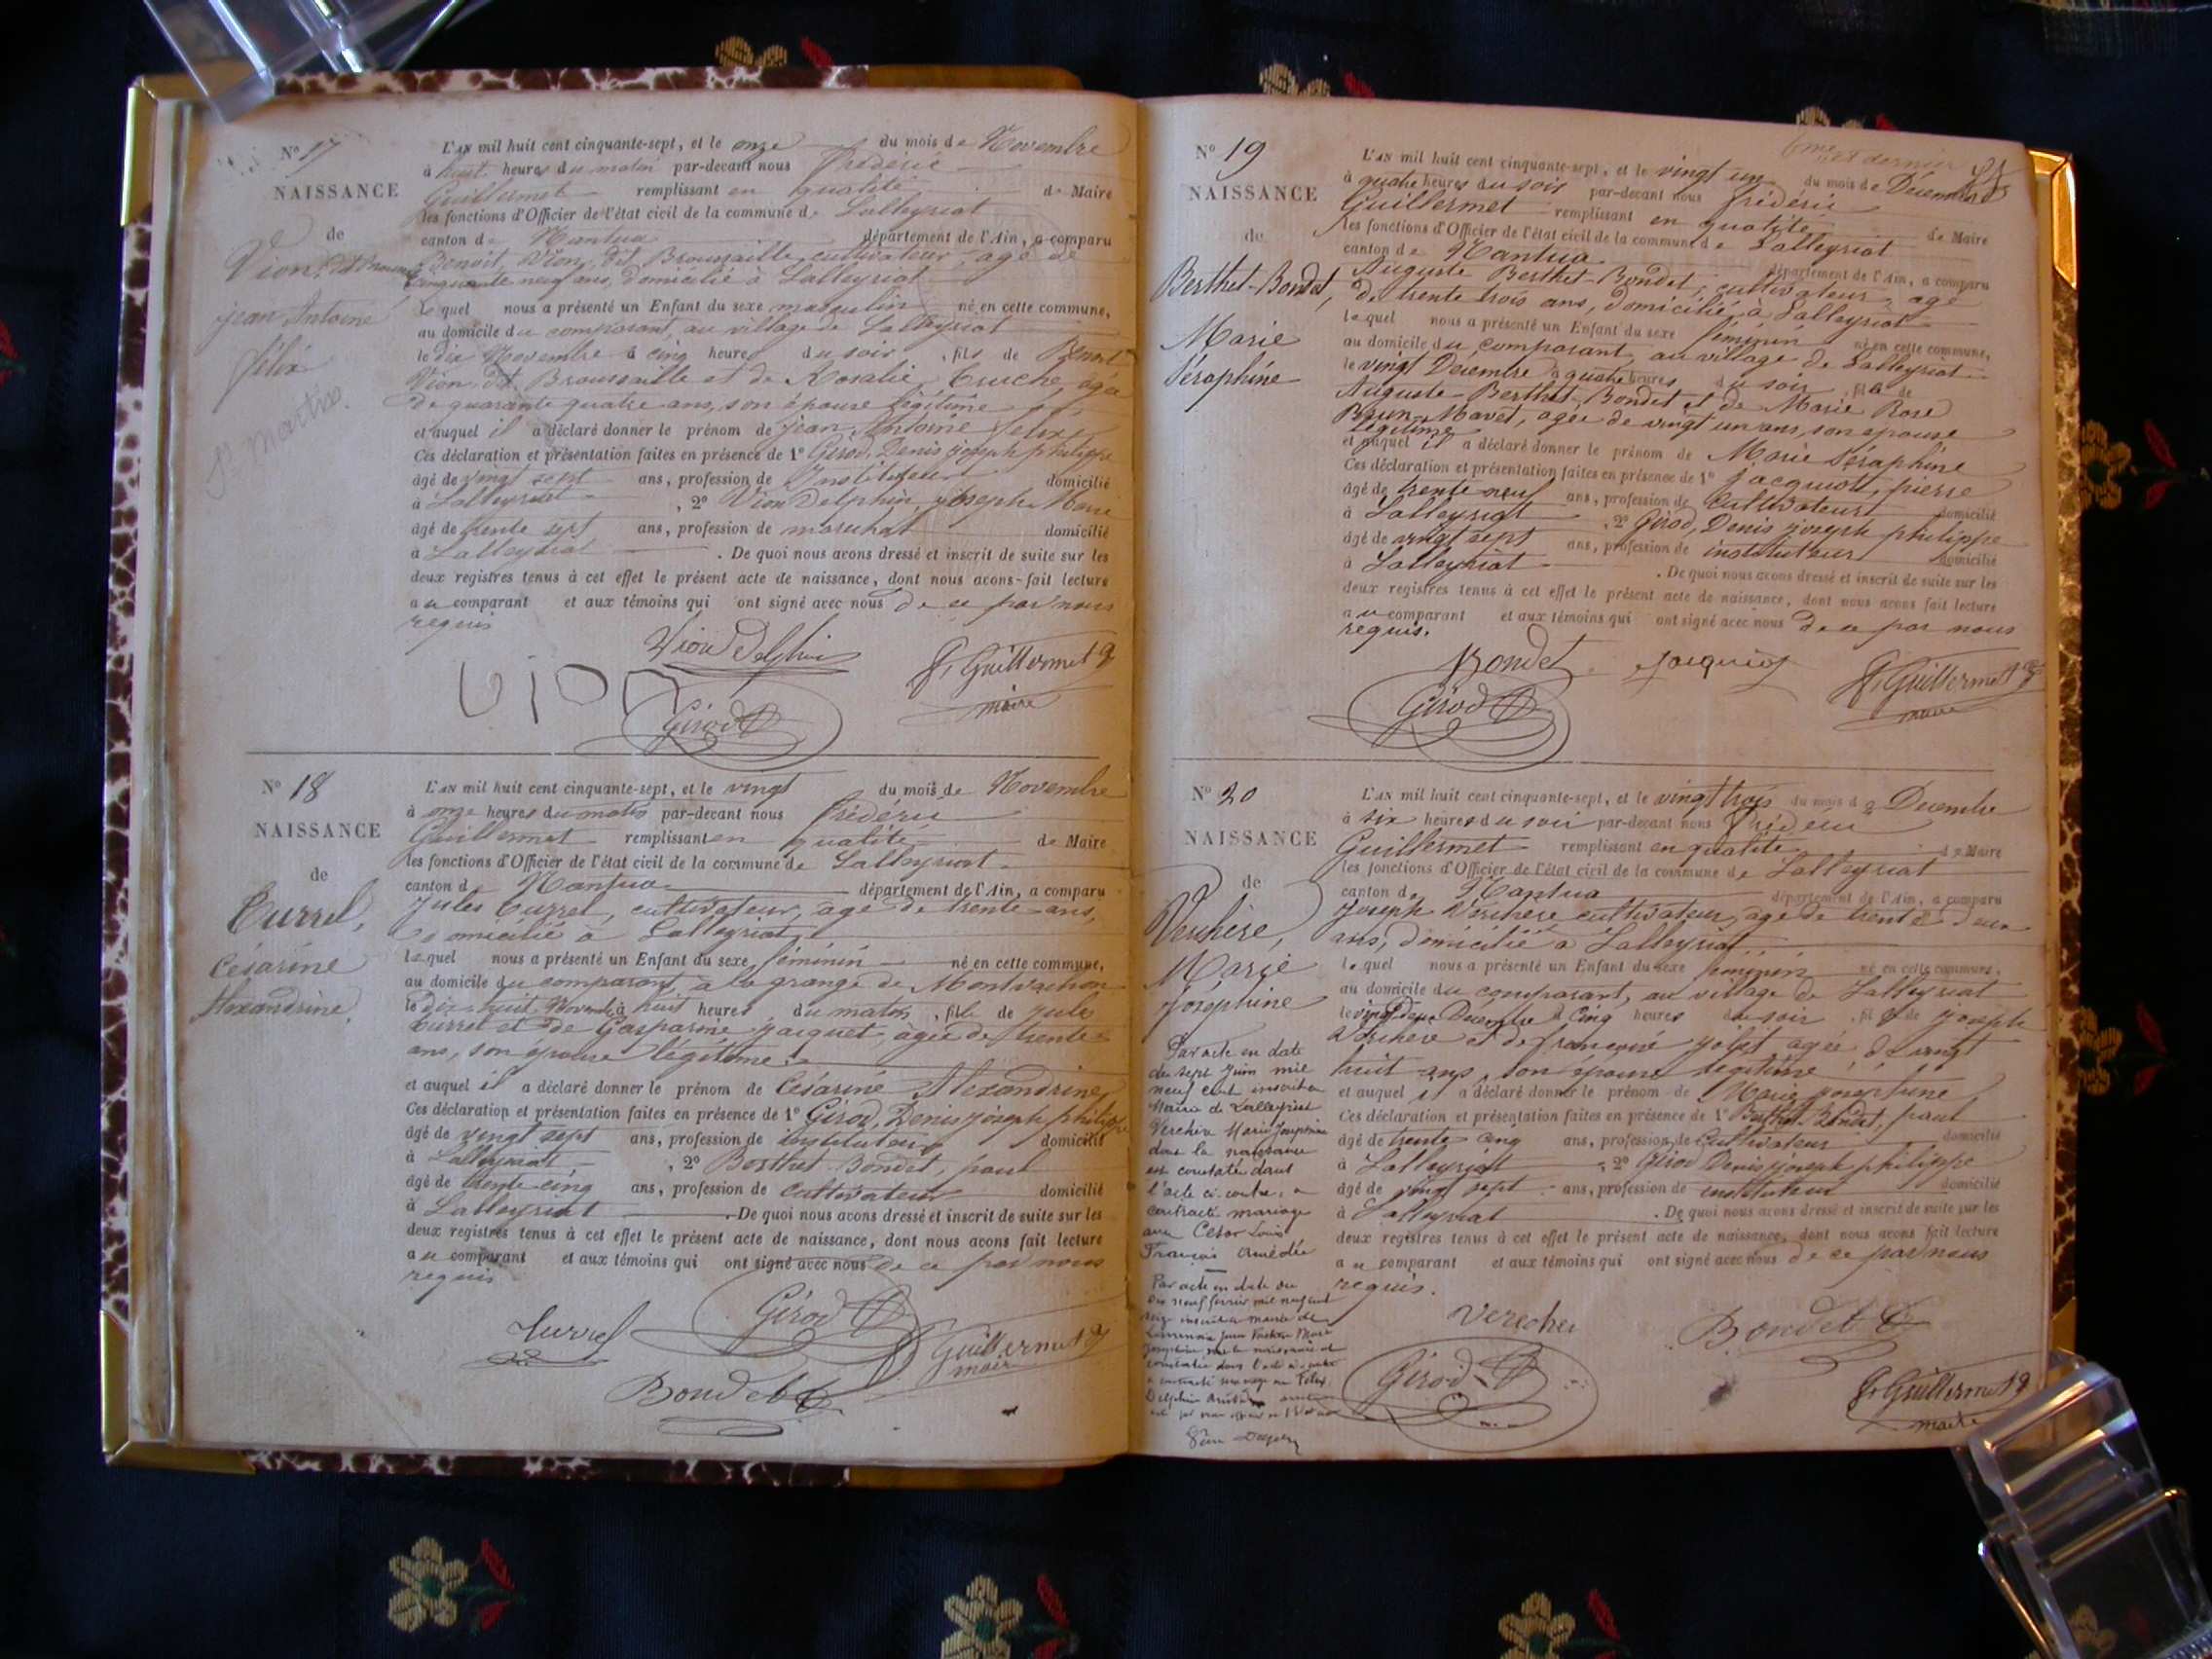 N° 17
NAISSANCE
de
Vion, dit Broussaille
jean Antoine
félix
St Martin.
L'AN mil huit cent cinquante-sept, et le onze du mois de Novembre
à huit heures du matin par-devant nous frédéric
Guillermet remplissant en qualité de Maire
les fonctions d'Officier de l'état civil de la commune de Lalleyriat
canton de Nantua département de l'Ain, a comparu
Benoit Vion, dit Broussaille, cultivateur, agé de
cinquante neuf ans, domicilié à Lalleyriat
lequel nous a présenté un Enfant du sexe masculin né en cette commune,
au domicile du comparant, au village de Lalleyriat
le dix Novembre à cinq heures du soir, fils de Benoit
Vion, dit Broussaille et de Rosalie Truche, agée
de quarante quatre ans, son épouse légitime
et auquel il a déclaré donner le prénom de jean Antoine felix
Ces déclaration et présentation faites en présence de 1° Girod, Denis joseph philippe
âgé de vingt sept ans, profession de Instituteur domicilié
à Lalleyriat, 2° Vion Delphin, joseph Marie
âgé de trente sept ans, profession de marechal domicilié
à Lalleyriat. De quoi nous avons dressé et inscrit de suite sur les
deux registres tenus à cet effet le présent acte de naissance, dont nous avons fait lecture
au comparant et aux témoins qui ont signé avec nous de ce par nous
requis
Vion Delphin
vion
F. Guillermet
maire
Girod
N° 18
NAISSANCE
de
Turrel,
Césarine
Alexandrine.
L'AN mil huit cent cinquante-sept, et le vingt du mois de Novembre
à onze heures du matin par-devant nous frédéric
Guillermet remplissant en qualité de Maire
les fonctions d'Officier de l'état civil de la commune de Lalleyriat
canton de Nantua département de l'Ain, a comparu
Jules Turrel, cultivateur, agé de trente ans,
domicilié à Lalleyriat,
lequel nous a présenté un Enfant du sexe féminin né en cette commune,
au domicile du comparant, à la grange de
le dix huit Novembre à huit heures du matin, fille de jules
Turrel et de Gasparine jacquet, agée de trente
ans, son épouse légitime.
et auquel il a déclaré donner le prénom de Césarine Alexandrine
Ces déclaration et présentation faites en présence de 1° Girod, Denis joseph philippe
âgé de vingt sept ans, profession de instituteur domicilié
à Lalleyriat, 2° Berthet-Bondet, paul
âgé de trente cinq ans, profession de cultivateur domicilié
à Lalleyriat. De quoi nous avons dressé et inscrit de suite sur les
deux registres tenus à cet effet le présent acte de naissance, dont nous avons fait lecture
au comparant et aux témoins qui ont signé avec nous de ce par nous
requis
Turrel
Girod
Guillermet
maire
Bondet
6me et dernier
N° 19
NAISSANCE
de
Berthet-Bondet,
Marie
Séraphine
L'AN mil huit cent cinquante-sept, et le vingt un du mois de Décembre
à quatre heures du soir par-devant nous frédéric
Guillermet remplissant en qualité de Maire
les fonctions d'Officier de l'état civil de la commune de Lalleyriat
canton de Nantua département de l'Ain, a comparu
Auguste Berthet-Bondet, cultivateur, agé
de trente trois ans, domicilié à Lalleyriat
lequel nous a présenté un Enfant du sexe féminin né en cette commune,
au domicile du comparant, au village de Lalleyriat
le vingt Décembre à quatre heures du soir, fille de
Auguste Berthet-Bondet et de Marie Rose
Brun-Mavet, agée de vingt un ans, son epouse
légitime
et auquel il a déclaré donner le prénom de Marie Séraphine
Ces déclaration et présentation faites en présence de 1° jacquiot, pierre
âgé de trente neuf ans, profession de cultivateur domicilié
à Lalleyriat, 2° Girod, Denis joseph philippe
âgé de vingt sept ans, profession de instituteur domicilié
à Lalleyriat. De quoi nous avons dressé et inscrit de suite sur les
deux registres tenus à cet effet le présent acte de naissance, dont nous avons fait lecture
au comparant et aux témoins qui ont signé avec nous de ce par nous
requis.
Bondet
jacquiot
F. Guillermet
maire
Girod
N° 20
NAISSANCE
de
Verchère,
Marie
joséphine
Par acte en date
du sept Juin mil
neuf cent inscrit a
Mairie de Lalleyriat
Verchère Marie Josephine
dont la naissance
est constatée dans
l'acte ci-contre, a
contracté mariage
avec César Louis
François Amédée
Par acte en date du
dix neuf février mil neuf cent
L'AN mil huit cent cinquante-sept, et le vingt trois du mois de Decembre
à six heures du soir par-devant nous frédéric
Guillermet remplissant en qualité de Maire
les fonctions d'Officier de l'état civil de la commune de Lalleyriat
canton de Nantua département de l'Ain, a comparu
Joseph Verchère cultivateur, agé de trente deux
ans, domicilié à Lalleyriat
lequel nous a présenté un Enfant du sexe féminin né en cette commune,
au domicile du comparant, au village de Lalleyriat
le vingt deux Decembre à cinq heures du soir, fille de joseph
Verchère et de françoise agée de vingt
huit ans, son épouse légitime
et auquel il a déclaré donner le prénom de Marie josephine
Ces déclaration et présentation faites en présence de 1° Berthet-Bondet, paul
âgé de trente cinq ans, profession de cultivateur domicilié
à Lalleyriat, 2° Girod Denis joseph philippe
âgé de vingt sept ans, profession de instituteur domicilié
à Lalleyriat. De quoi nous avons dressé et inscrit de suite sur les
deux registres tenus à cet effet le présent acte de naissance, dont nous avons fait lecture
au comparant et aux témoins qui ont signé avec nous de ce par nous
requis.
Vercher
Bondet
Girod
F. Guillermet
maire